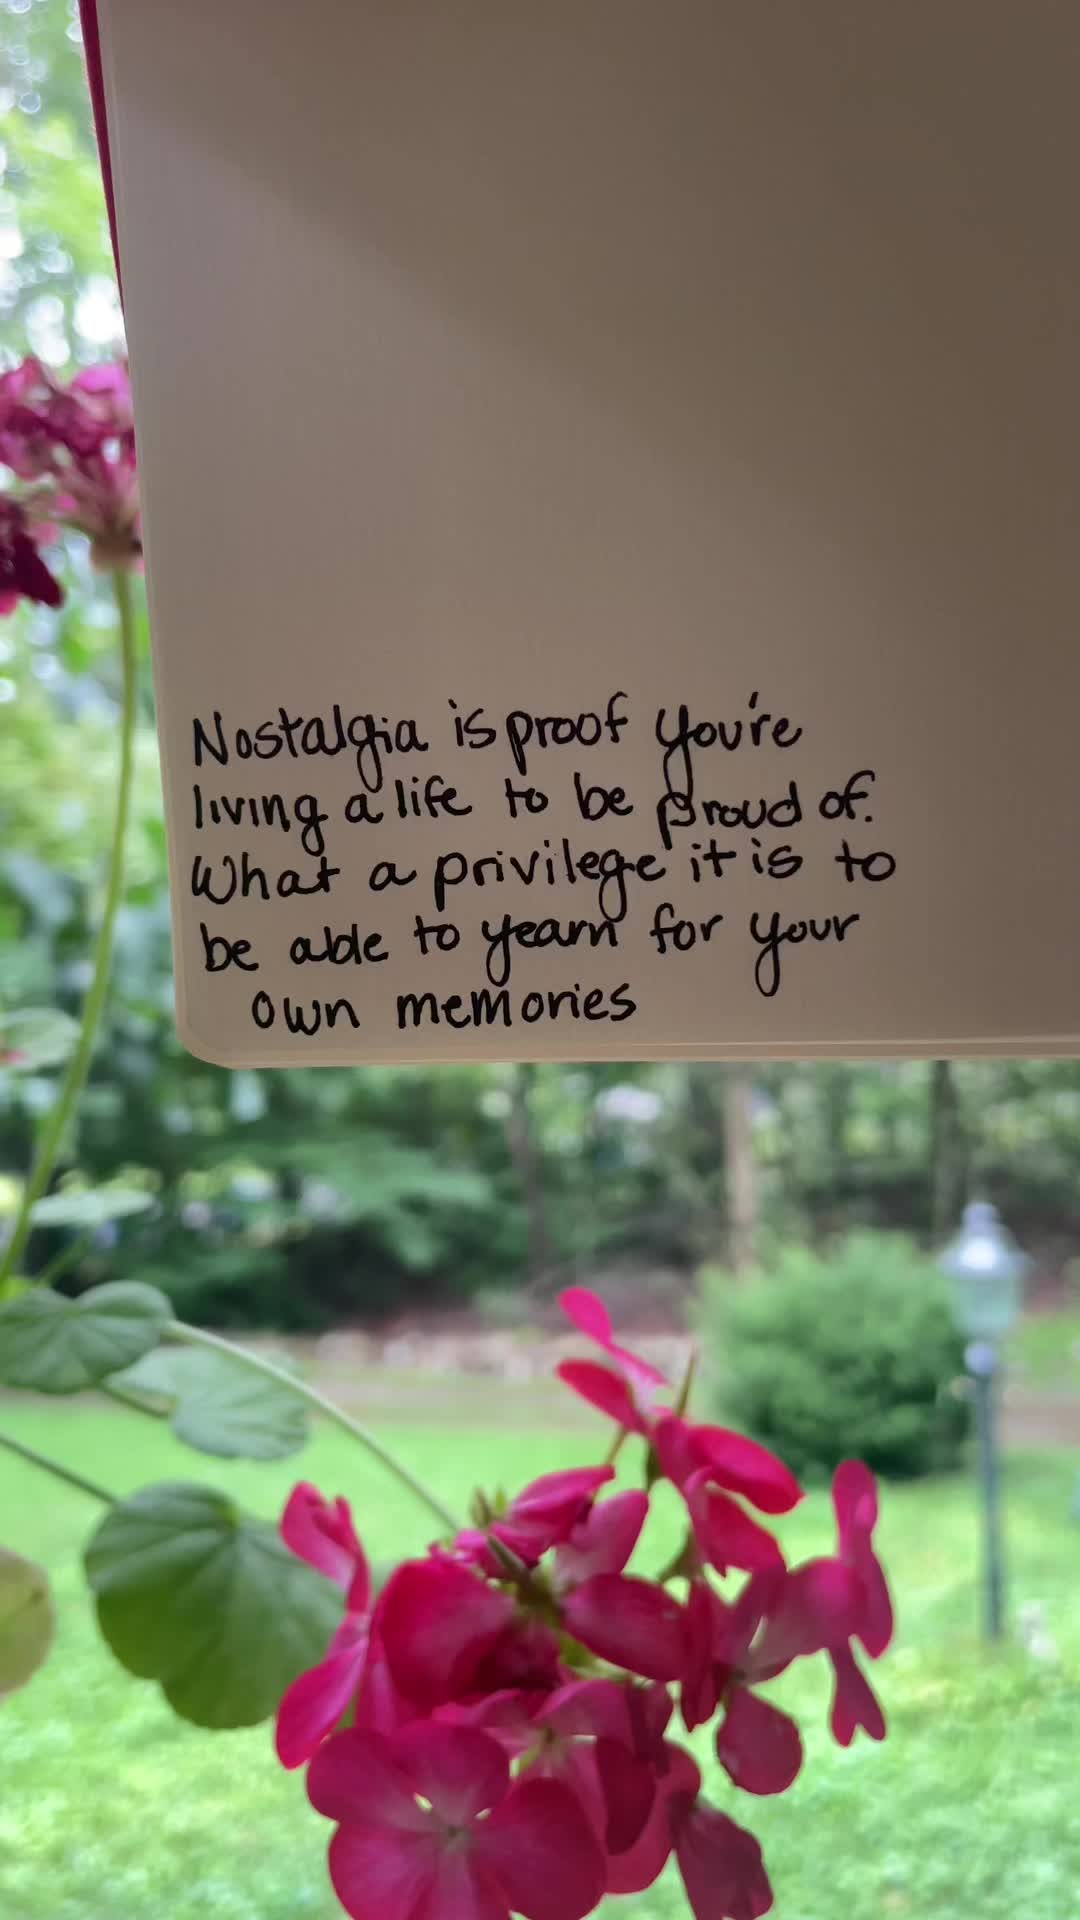 Nostalgia is proof you're
living a life to be proud of.
What a privilege it is to
be able to yearn for your
own memories